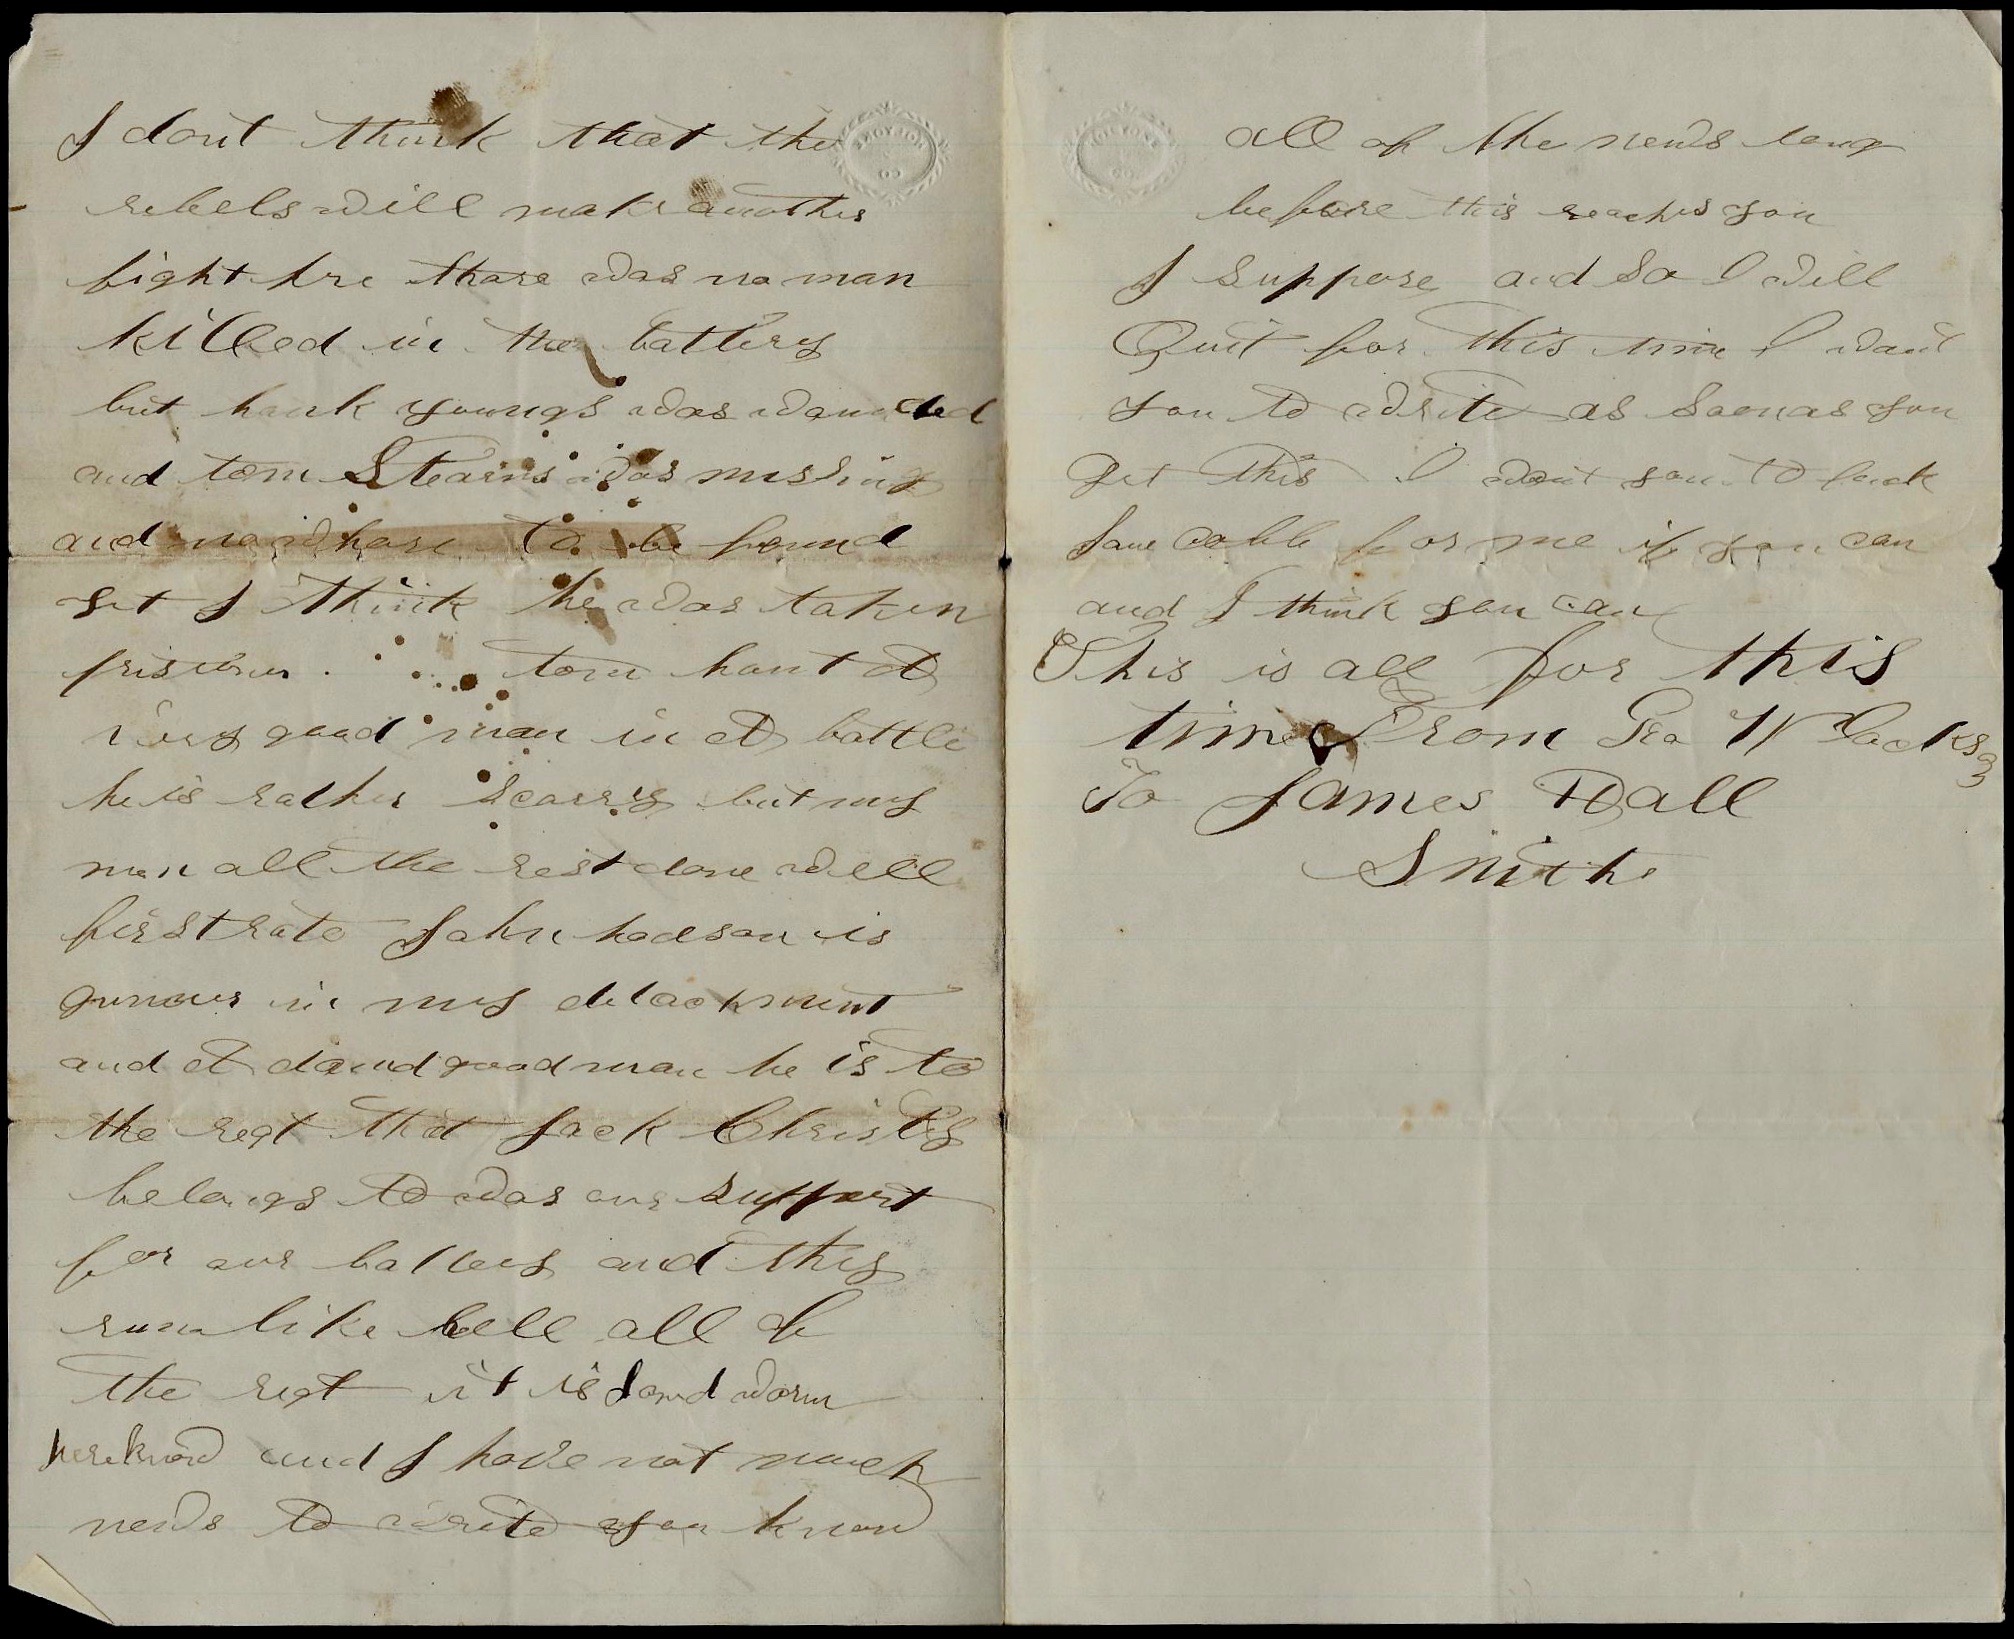 I dont think that the
rebels will make another
fight hre thare was no man
killed in the battery
but hank youngs was wounded
and tom Stearns was missing
and nowhare to be found
yet I think he was taken
prisoner . tom haut a
very good man in a battle
he is rather scarry but my
men all the rest done well
first rate John hodson is
gunner in my detachment
and a damd good man he is to
the regt that Jack Christy
belongs to was our support
for our battery and they
run like hell all of
the regt it is damd worm
here know and I have not much
news to write you know
all of the news long
before this reaches you
I suppose and so I will
Quit for this time I want
you to write as soon as you
get this I want you to fuck
Jane Cobb for me if you can
and I think you can
This is all for this
time From Geo W Jackson
To James Dall
Smith